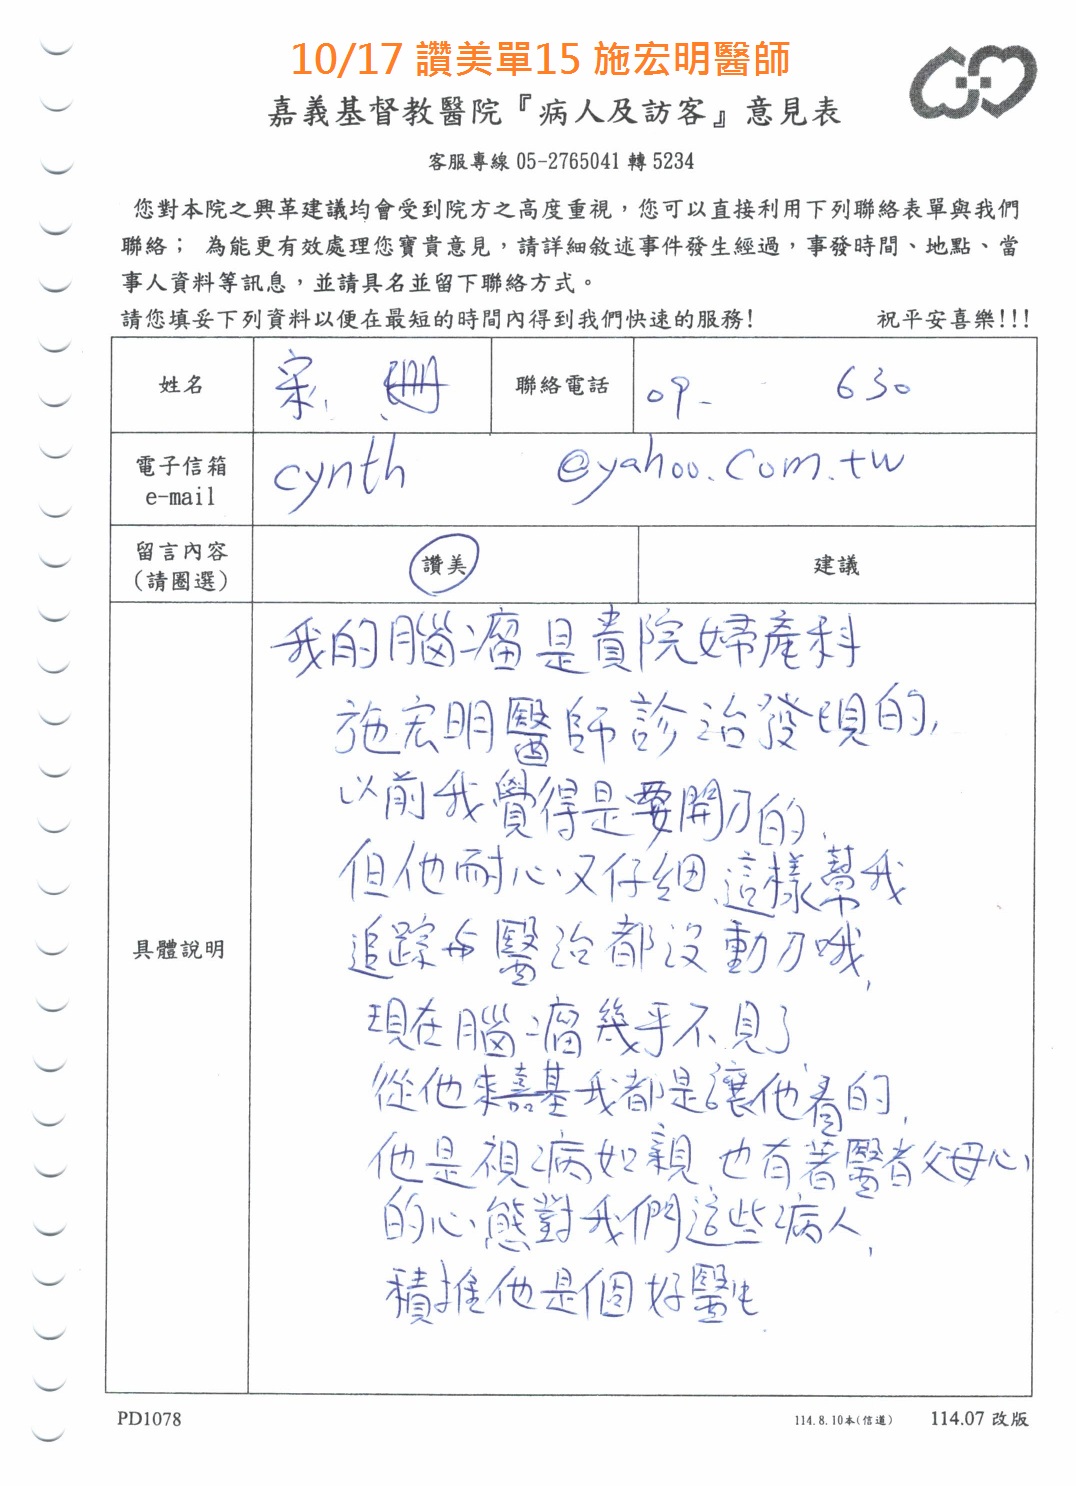 10/17 讚美單15 施宏明醫師
嘉義基督教醫院『病人及訪客』意見表
客服專線 05-2765041 轉 5234
您對本院之興革建議均會受到院方之高度重視，您可以直接利用下列聯絡表單與我們
聯絡； 為能更有效處理您寶貴意見，請詳細敘述事件發生經過，事發時間、地點、當
事人資料等訊息，並請具名並留下聯絡方式。
請您填妥下列資料以便在最短的時間內得到我們快速的服務! 祝平安喜樂!!!
姓名 宋 珊 聯絡電話 09- 630
電子信箱 cynth @yahoo.com.tw
e-mail
留言內容 讚美 建議
(請圈選)
具體說明
我的腦瘤是貴院婦產科
施宏明醫師診治發現的,
以前我覺得是要開刀的,
但他耐心又仔細,這樣幫我
追踪与醫治都沒動刀哦,
現在腦瘤幾乎不見了
從他來嘉基我都是讓他看的,
他是視病如親 也有著醫者父母心
的心態對我們這些病人,
積推他是個好醫生
PD1078 114.8.10本(信道) 114.07 改版